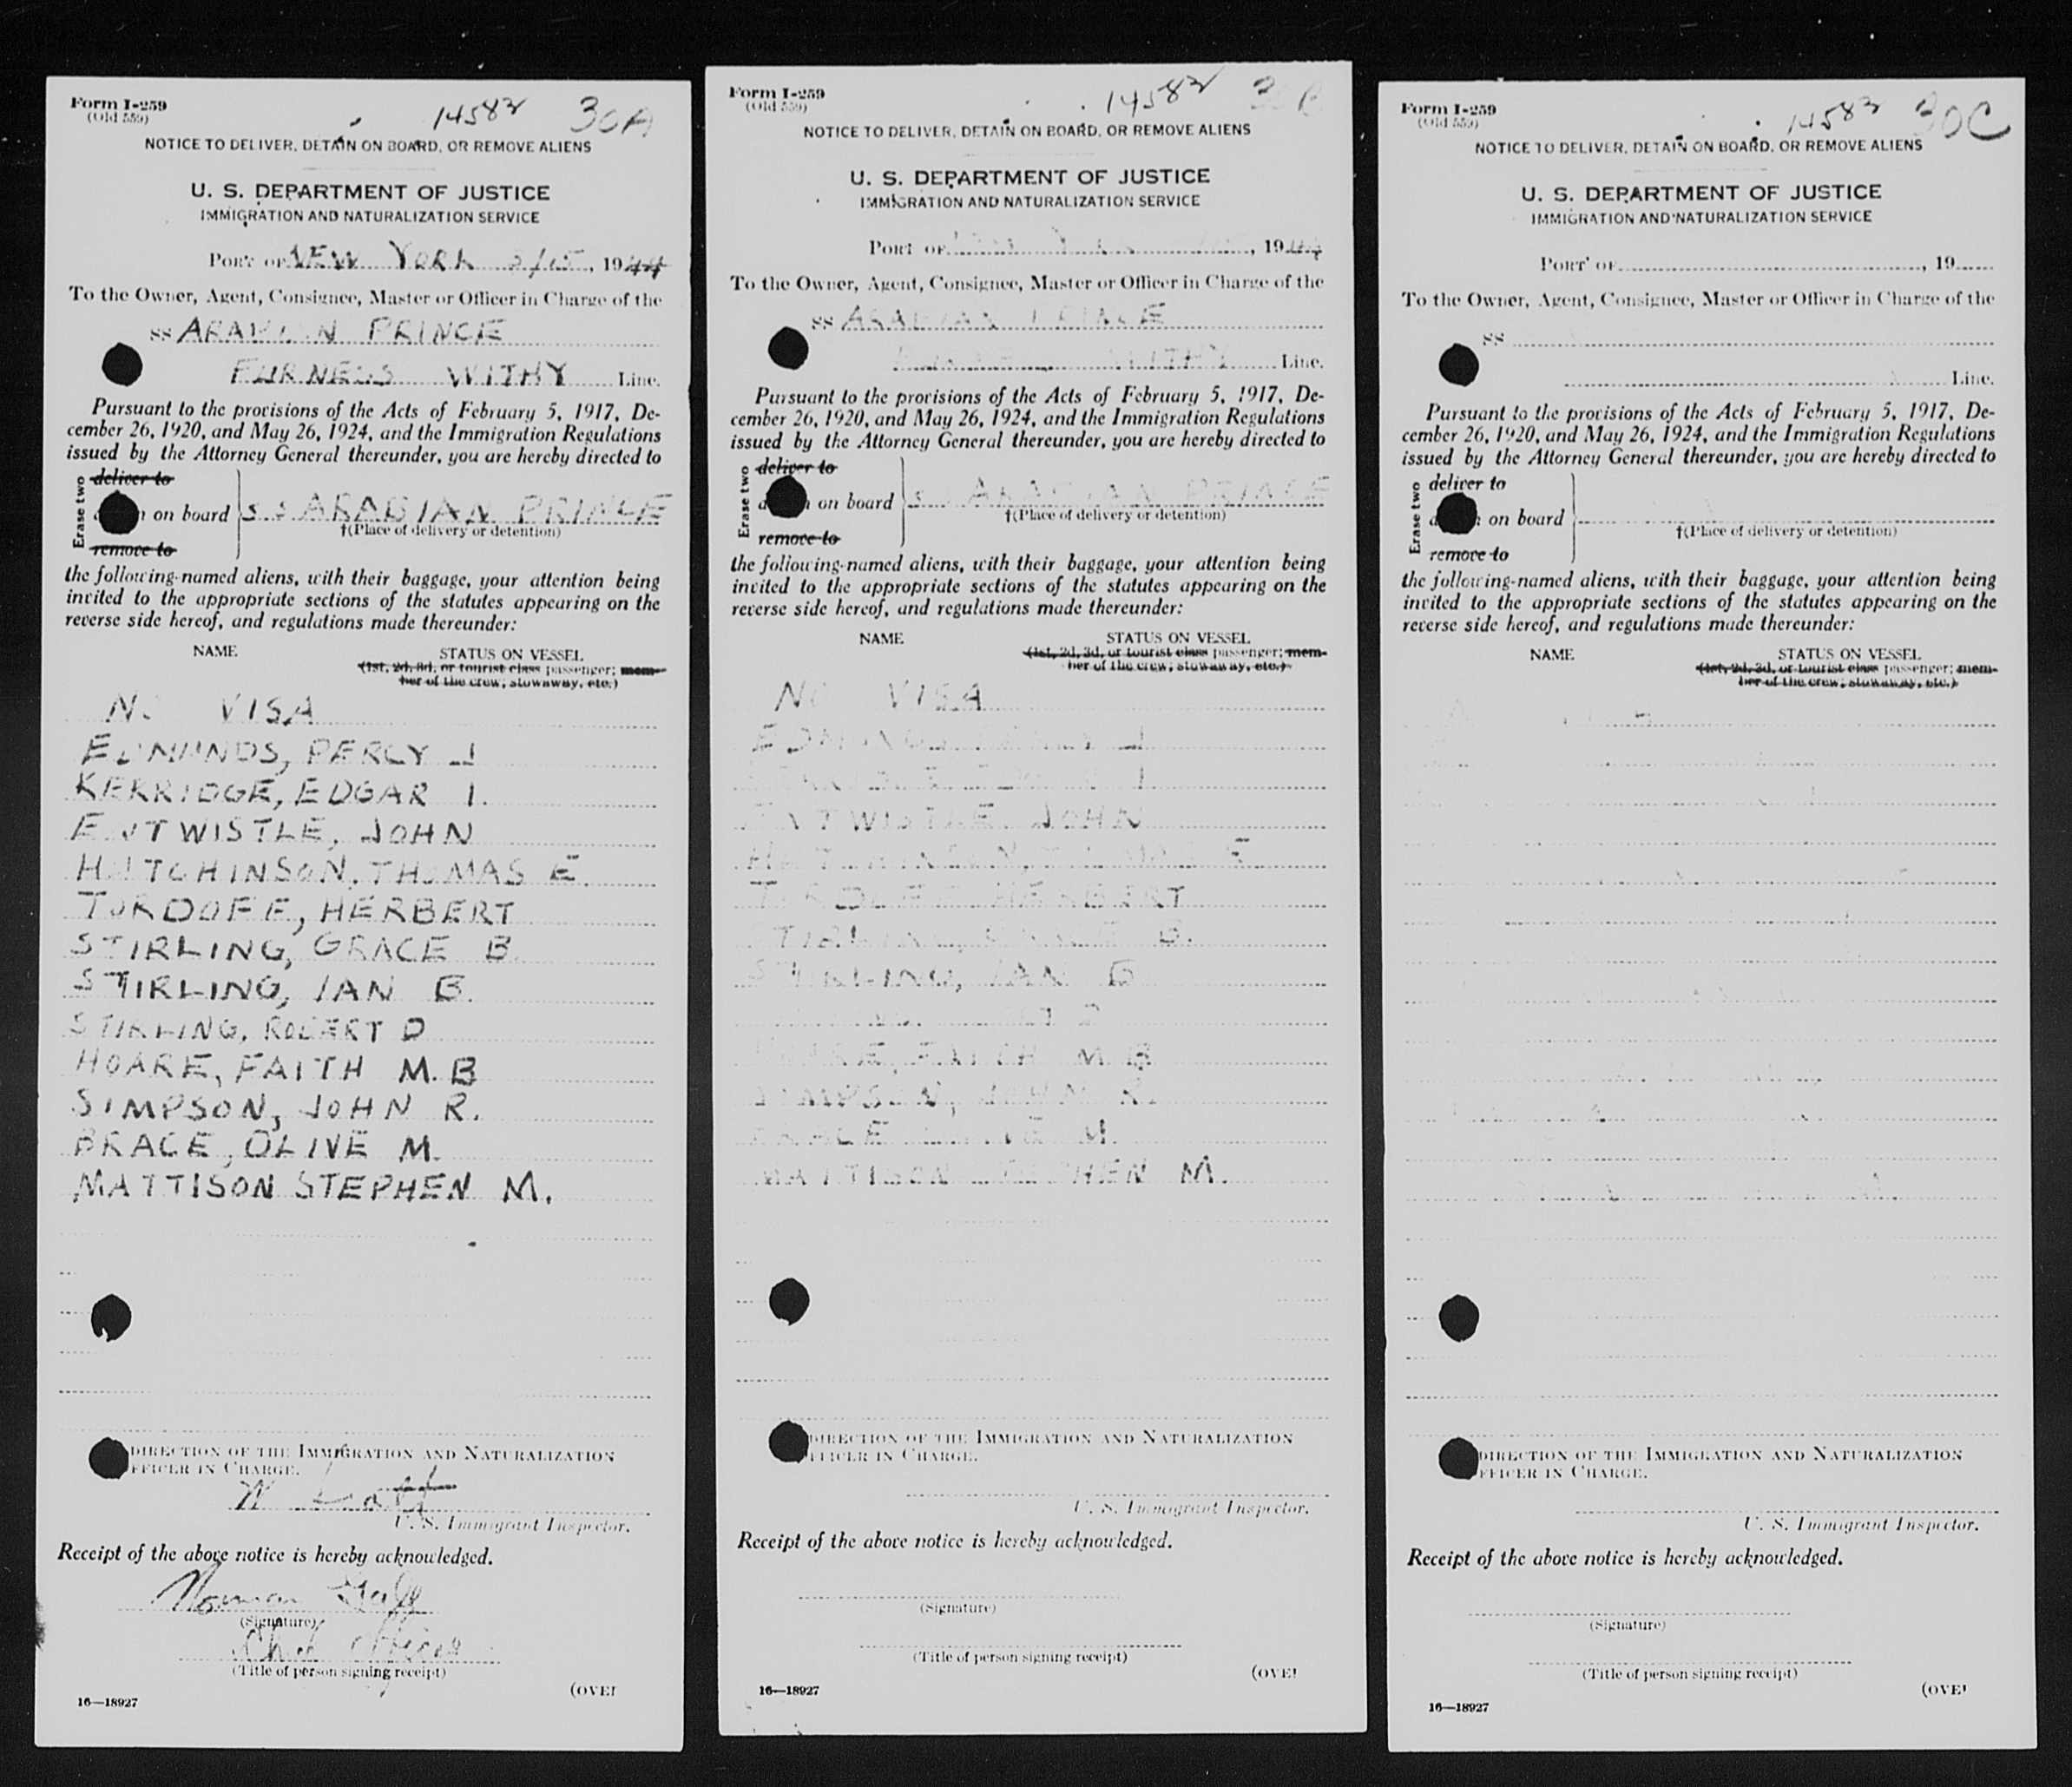 Form I-259
(Old 559)
14582 30A
NOTICE TO DELIVER, DETAIN ON BOARD, OR REMOVE ALIENS
U. S. DEPARTMENT OF JUSTICE
IMMIGRATION AND NATURALIZATION SERVICE
PORT OF NEW YORK 3/15, 1944
To the Owner, Agent, Consignee, Master or Officer in Charge of the
SS ARABIAN PRINCE
FURNESS WITHY Line.
Pursuant to the provisions of the Acts of February 5, 1917, De-
cember 26, 1920, and May 26, 1924, and the Immigration Regulations
issued by the Attorney General thereunder, you are hereby directed to
Erase two
deliver to
on board S S ARABIAN PRINCE
†(Place of delivery or detention)
remove to
the following-named aliens, with their baggage, your attention being
invited to the appropriate sections of the statutes appearing on the
reverse side hereof, and regulations made thereunder:
NAME STATUS ON VESSEL
(1st, 2d, 3d, or tourist class passenger; mem-
ber of the crew; stowaway, etc.)
NO VISA
EDMUNDS, PERCY J
KERRIDGE, EDGAR I.
ENTWISTLE, JOHN
HUTCHINSON, THOMAS E.
TORDOFF, HERBERT
STIRLING, GRACE B.
STIRLING, IAN G.
STIRLING, ROBERT D
HOARE, FAITH M. B
SIMPSON, JOHN R.
BRACE, OLIVE M.
MATTISON STEPHEN M.
DIRECTION OF THE IMMIGRATION AND NATURALIZATION
FFICER IN CHARGE.
W
U. S. Immigrant Inspector.
Receipt of the above notice is hereby acknowledged.
Norman
(Signature)
Chief Officer
(Title of person signing receipt)
(OVER
16—18927
Form I-259
(Old 559)
14582 30B
NOTICE TO DELIVER, DETAIN ON BOARD, OR REMOVE ALIENS
U. S. DEPARTMENT OF JUSTICE
IMMIGRATION AND NATURALIZATION SERVICE
PORT OF , 1944
To the Owner, Agent, Consignee, Master or Officer in Charge of the
SS ARABIAN PRINCE
WITHY Line.
Pursuant to the provisions of the Acts of February 5, 1917, De-
cember 26, 1920, and May 26, 1924, and the Immigration Regulations
issued by the Attorney General thereunder, you are hereby directed to
Erase two
deliver to
on board S ARABIAN PRINCE
†(Place of delivery or detention)
remove to
the following-named aliens, with their baggage, your attention being
invited to the appropriate sections of the statutes appearing on the
reverse side hereof, and regulations made thereunder:
NAME STATUS ON VESSEL
(1st, 2d, 3d, or tourist class passenger; mem-
ber of the crew; stowaway, etc.)
NO VISA
EDMUNDS J
I
ENTWISTLE, JOHN
E
TORDOFF HERBERT
STIRLING, B.
STIRLING, IAN G
D
HOARE, FAITH M B
SIMPSON, JOHN R.
BRACE M.
MATTISON STEPHEN M.
DIRECTION OF THE IMMIGRATION AND NATURALIZATION
FFICER IN CHARGE.
U. S. Immigrant Inspector.
Receipt of the above notice is hereby acknowledged.
(Signature)
(Title of person signing receipt)
(OVER
16—18927
Form I-259
(Old 559)
14582 30C
NOTICE TO DELIVER, DETAIN ON BOARD, OR REMOVE ALIENS
U. S. DEPARTMENT OF JUSTICE
IMMIGRATION AND NATURALIZATION SERVICE
PORT OF , 19
To the Owner, Agent, Consignee, Master or Officer in Charge of the
SS
Line.
Pursuant to the provisions of the Acts of February 5, 1917, De-
cember 26, 1920, and May 26, 1924, and the Immigration Regulations
issued by the Attorney General thereunder, you are hereby directed to
Erase two
deliver to
on board
†(Place of delivery or detention)
remove to
the following-named aliens, with their baggage, your attention being
invited to the appropriate sections of the statutes appearing on the
reverse side hereof, and regulations made thereunder:
NAME STATUS ON VESSEL
(1st, 2d, 3d, or tourist class passenger; mem-
ber of the crew; stowaway, etc.)
DIRECTION OF THE IMMIGRATION AND NATURALIZATION
FFICER IN CHARGE.
U. S. Immigrant Inspector.
Receipt of the above notice is hereby acknowledged.
(Signature)
(Title of person signing receipt)
(OVER
16—18927